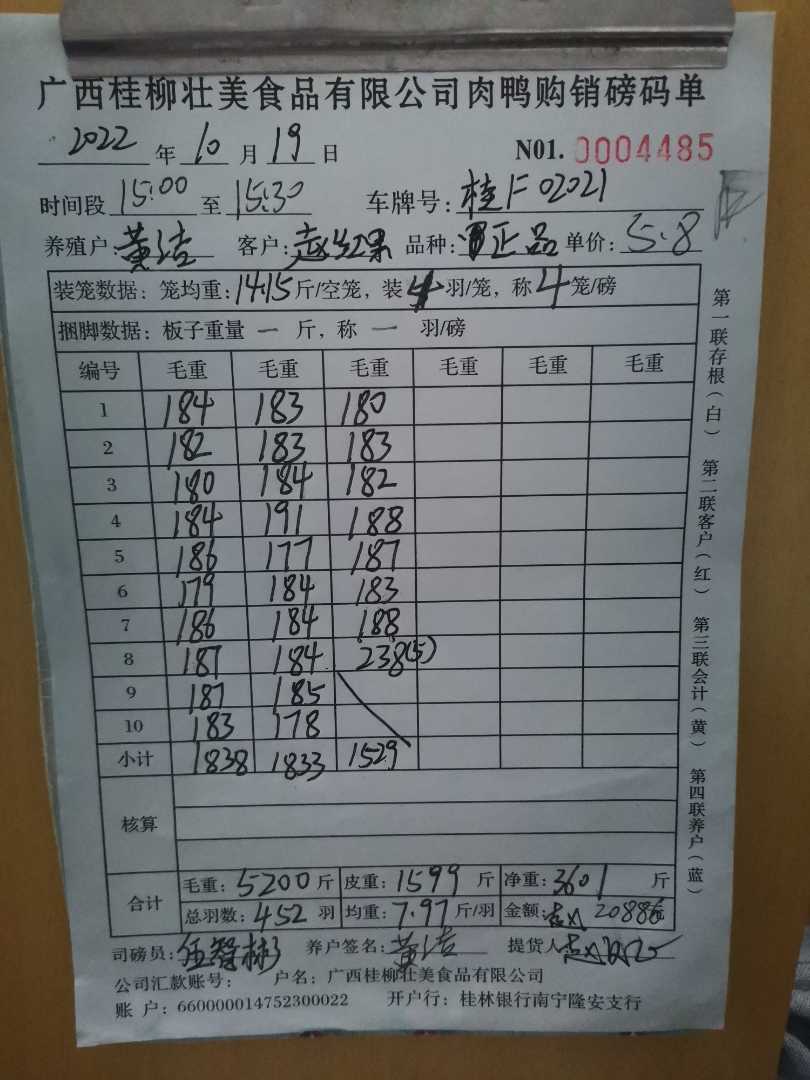 广西桂柳壮美食品有限公司肉鸭购销磅码单
2022 年 10 月 19 日 N01. 0004485
时间段 15:00 至 15:30 车牌号: 桂F02021
养殖户: 黄洁 客户: 赵红果 品种: 正品 单价: 5.8
装笼数据: 笼均重: 14.15 斤/空笼, 装 4 羽/笼, 称 4 笼/磅
捆脚数据: 板子重量 一 斤, 称 一 羽/磅
编号 毛重 毛重 毛重 毛重 毛重 毛重
1 184 183 180
2 182 183 183
3 180 184 182
4 184 191 188
5 186 177 187
6 179 184 183
7 186 184 188
8 187 184 238(5)
9 187 185
10 183 178
小计 1838 1833 1529
核算
合计
毛重: 5200 斤 皮重: 1599 斤 净重: 3601 斤
总羽数: 452 羽 均重: 7.97 斤/羽 金额: 20886
司磅员: 伍智彬 养户签名: 黄洁 提货人
公司汇款账号: 户名: 广西桂柳壮美食品有限公司
账 户: 660000014752300022 开户行: 桂林银行南宁隆安支行
第一联存根(白) 第二联客户(红) 第三联会计(黄) 第四联养户(蓝)